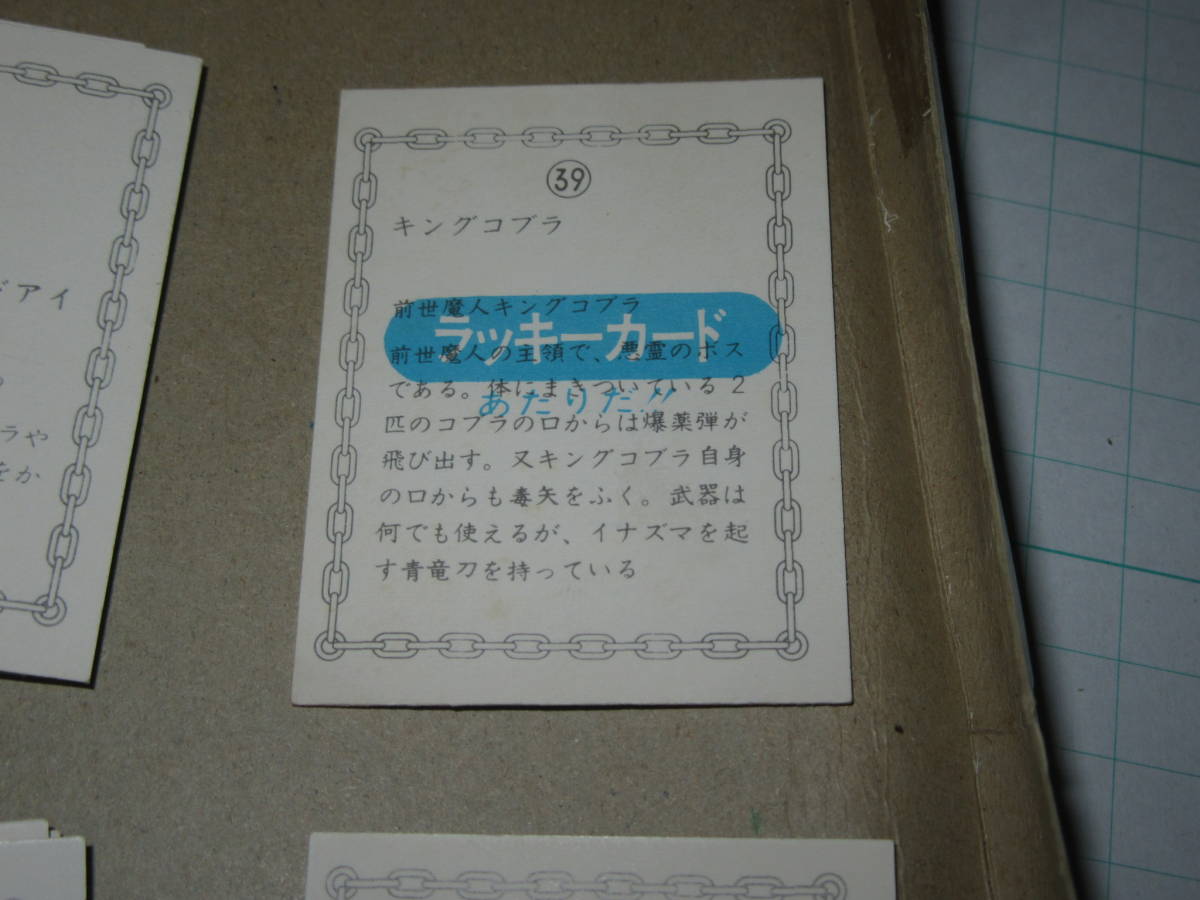 39
キングコブラ
前世魔人キングコブラ
ラッキーカード
前世魔人の主領で、悪霊のボス
である。体にまきついている2
あたりだ!!
匹のコブラの口からは爆薬弾が
飛び出す。又キングコブラ自身
の口からも毒矢をふく。武器は
何でも使えるが、イナズマを起
す青竜刀を持っている
アイ
ラや
をか